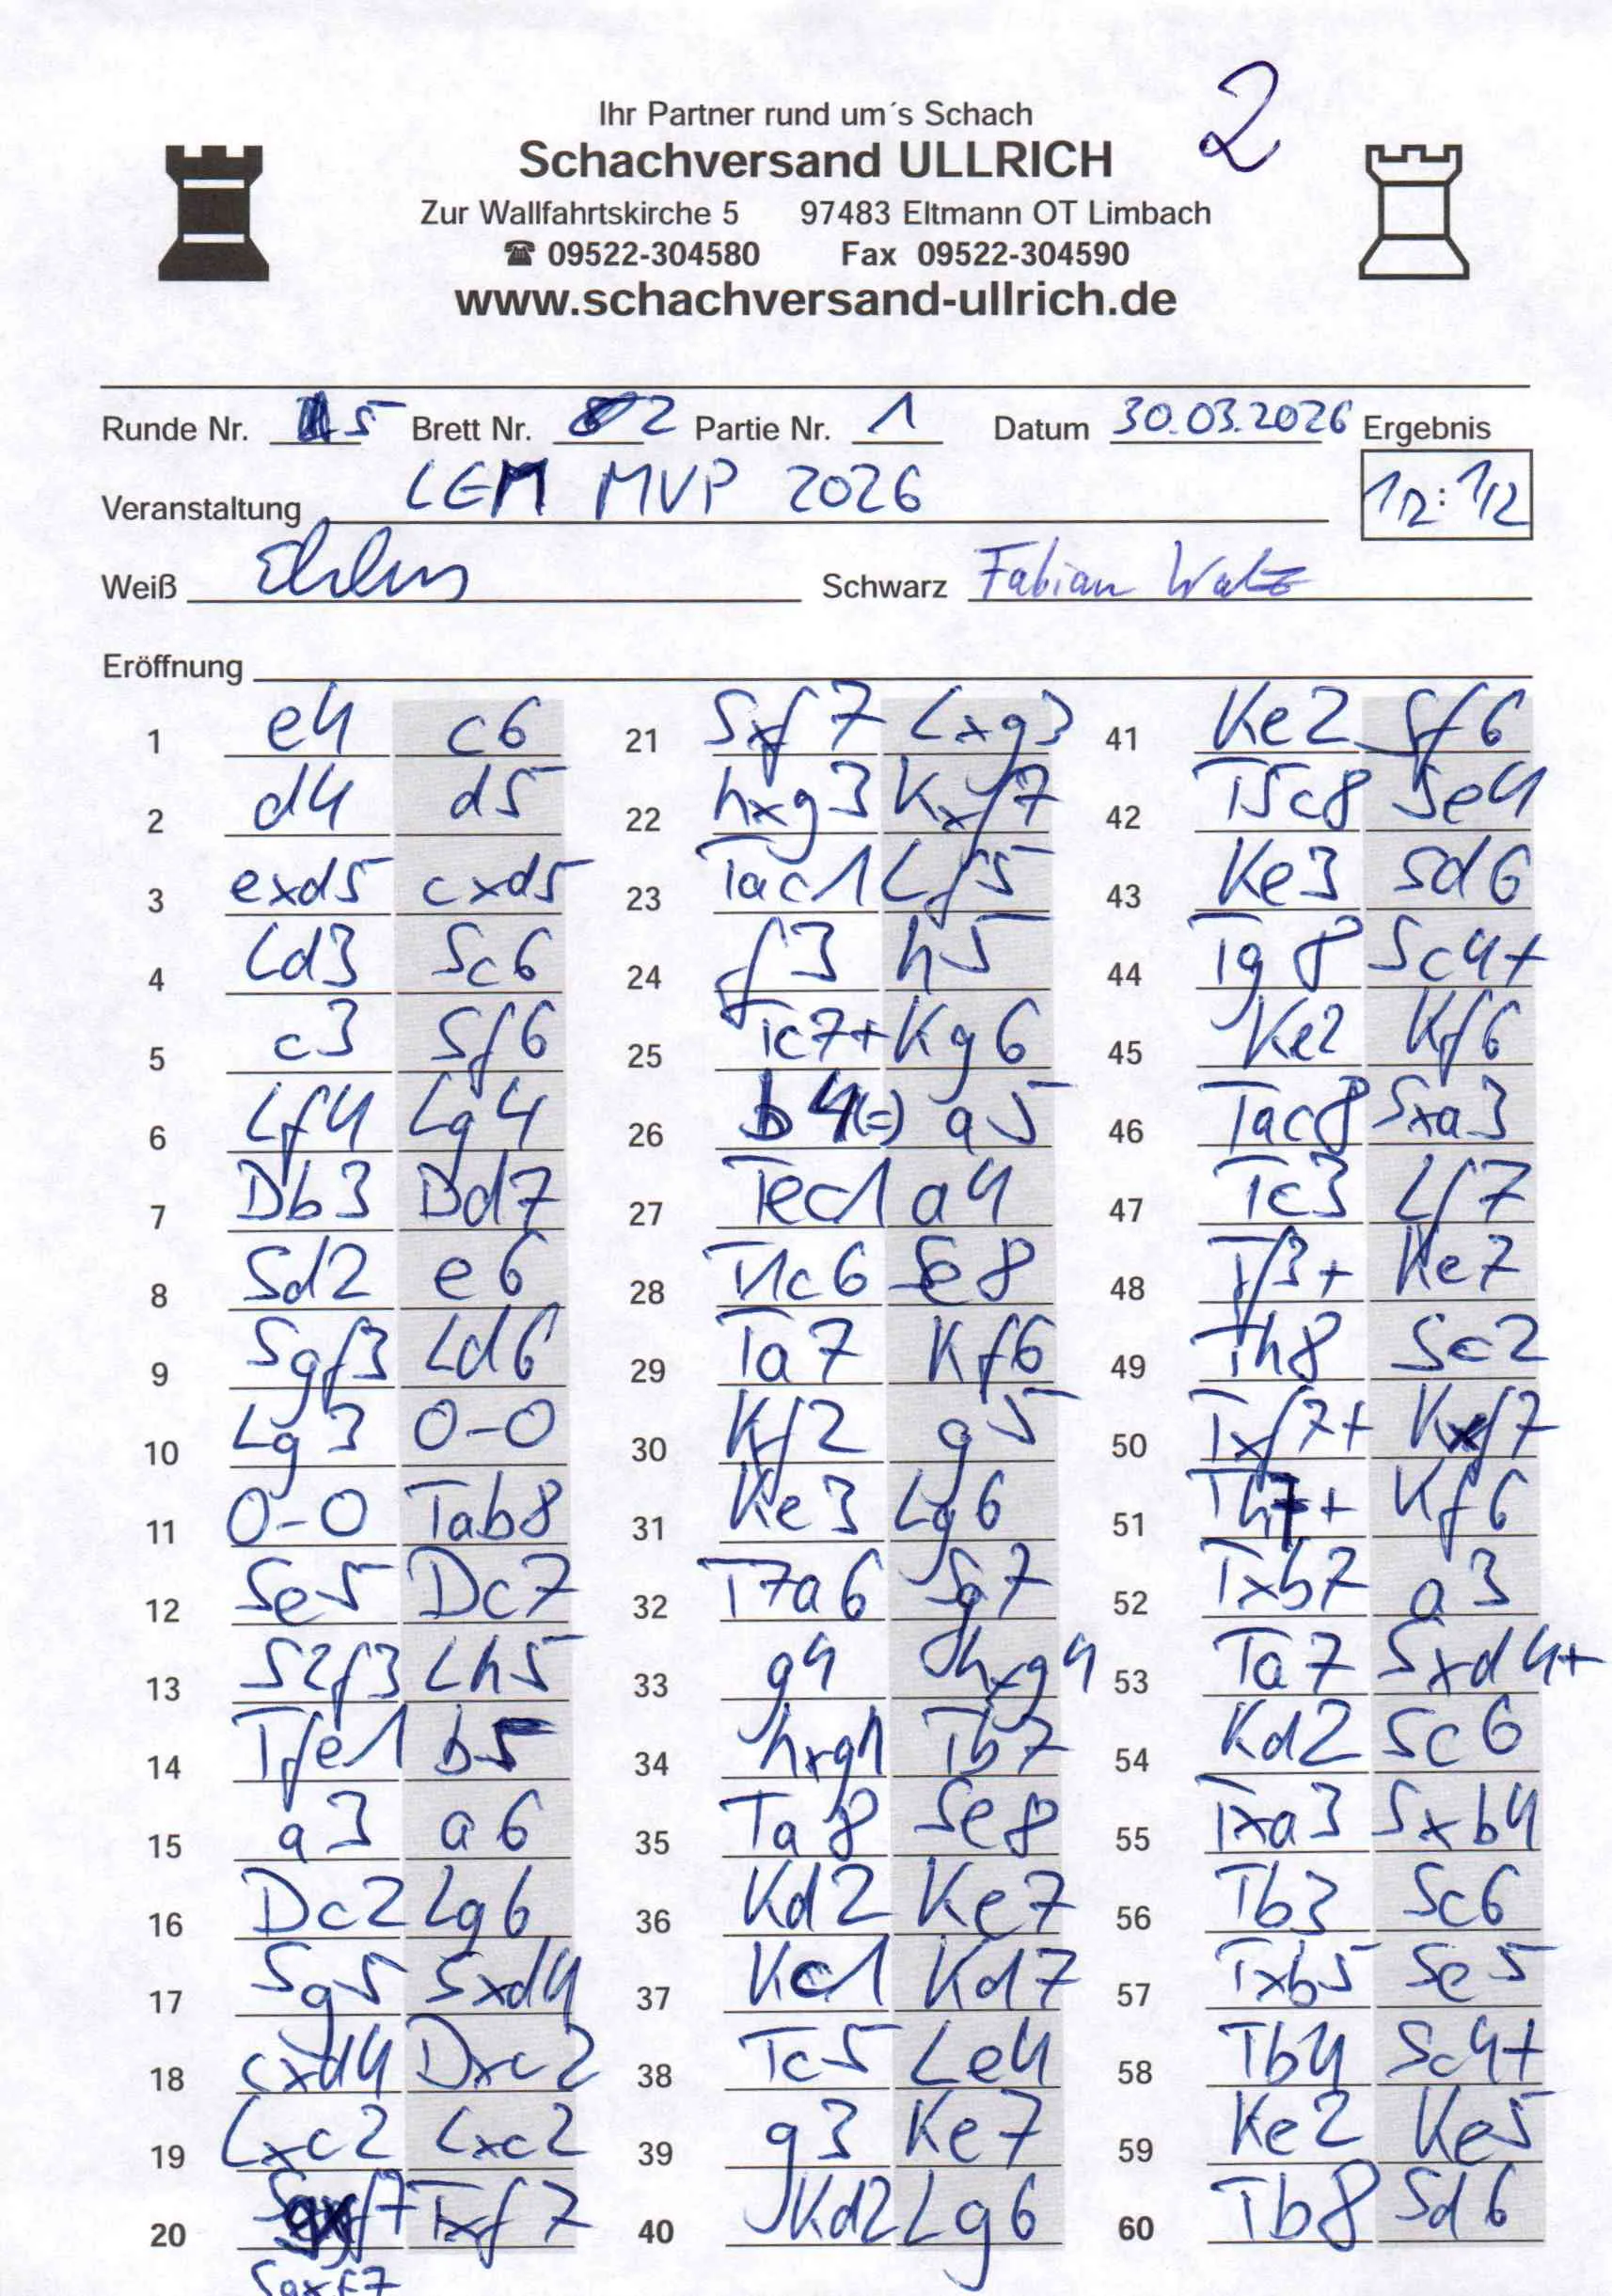 2
Ihr Partner rund um´s Schach
Schachversand ULLRICH
Zur Wallfahrtskirche 5 97483 Eltmann OT Limbach
☎ 09522-304580 Fax 09522-304590
www.schachversand-ullrich.de
Runde Nr. 5 Brett Nr. 2 Partie Nr. 1 Datum 30.03.2026 Ergebnis
Veranstaltung LEM MVP 2026 1/2:1/2
Weiß Schwarz Fabian
Eröffnung
1 e4 c6 21 Sxf7 Lxg3 41 Ke2 Sf6
2 d4 d5 22 hxg3 Kxf7 42 T5c8 Se4
3 exd5 cxd5 23 Tac1 Lf5 43 Ke3 Sd6
4 Ld3 Sc6 24 f3 h5 44 Tg8 Sc4+
5 c3 Sf6 25 Tc7+ Kg6 45 Ke2 Kf6
6 Lf4 Lg4 26 b4(=) a5 46 Tac8 Sxa3
7 Db3 Dd7 27 Tec1 a4 47 Tc3 Lf7
8 Sd2 e6 28 T1c6 Se8 48 Tf3+ Ke7
9 Sgf3 Ld6 29 Ta7 Kf6 49 Th8 Sc2
10 Lg3 0-0 30 Kf2 g5 50 Txf7+ Kxf7
11 0-0 Tab8 31 Ke3 Lg6 51 Th7+ Kf6
12 Se5 Dc7 32 T7a6 Sg7 52 Txb7 a3
13 S2f3 Lh5 33 g4 hxg4 53 Ta7 Sxd4+
14 Tfe1 b5 34 hxg4 Tb7 54 Kd2 Sc6
15 a3 a6 35 Ta8 Se8 55 Txa3 Sxb4
16 Dc2 Lg6 36 Kd2 Ke7 56 Tb3 Sc6
17 Sg5 Sxd4 37 Kc1 Kd7 57 Txb5 Se5
18 cxd4 Dxc2 38 Tc5 Le4 58 Tb4 Sc4+
19 Lxc2 Lxc2 39 g3 Ke7 59 Ke2 Ke5
20 Txf7 40 Kd2 Lg6 60 Tb8 Sd6
Sgxf7